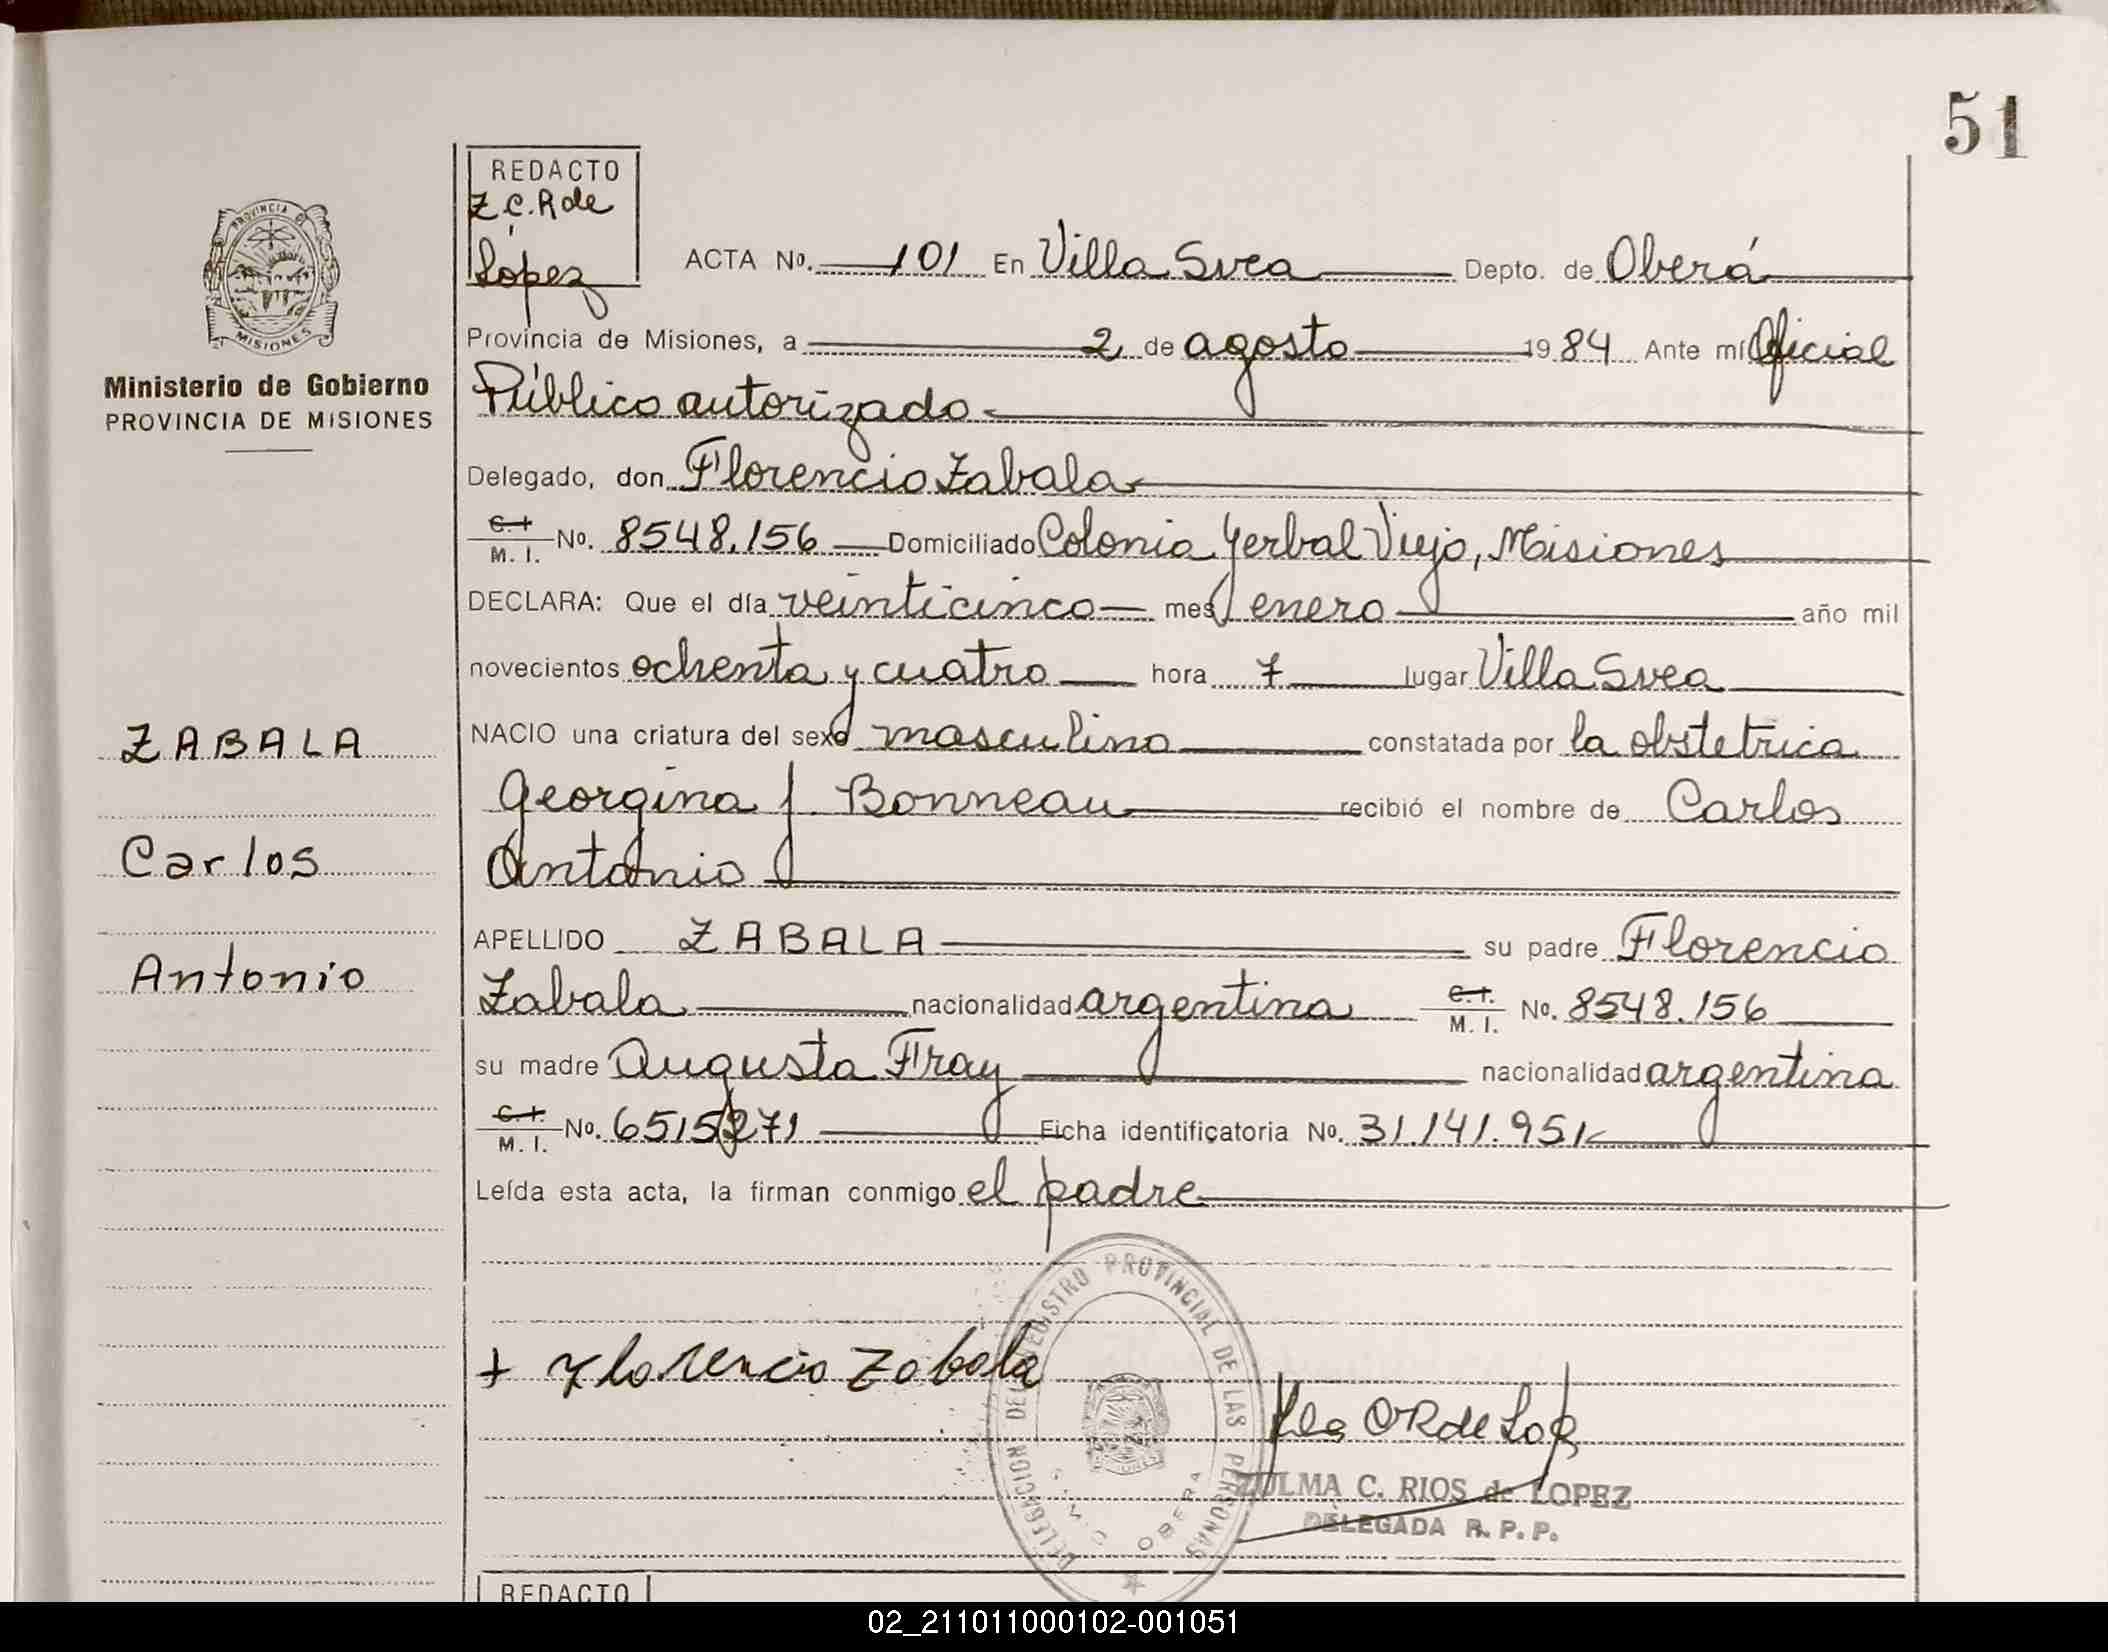 51
REDACTO
Z.C.R de
López
PROVINCIA DE
MISIONES
Ministerio de Gobierno
PROVINCIA DE MISIONES
ACTA No. 101 En Villa Svea Depto. de Oberá
Provincia de Misiones, a 2 de agosto 1984 Ante mí Oficial
Público autorizado
Delegado, don Florencio Zabala
C.I. M. I. No. 8548.156 Domiciliado Colonia Yerbal Viejo, Misiones
DECLARA: Que el día veinticinco mes enero año mil
novecientos ochenta y cuatro hora 7 lugar Villa Svea
ZABALA
NACIO una criatura del sexo masculino constatada por la obstetrica
Georgina J. Bonneau recibió el nombre de Carlos
Carlos
Antonio
APELLIDO ZABALA su padre Florencio
Antonio
Zabala nacionalidad argentina C.I. M. I. No. 8548.156
su madre Augusta Fray nacionalidad argentina
C.I. M. I. No. 6515271 Ficha identificatoria No. 31.141.951
Leída esta acta, la firman conmigo el padre
+ Florencio Zabala
DELEGACION DEL REGISTRO PROVINCIAL DE LAS PERSONAS
OBERA
ZULMA C. RIOS de LOPEZ
DELEGADA R. P. P.
REDACTO
02_211011000102-001051